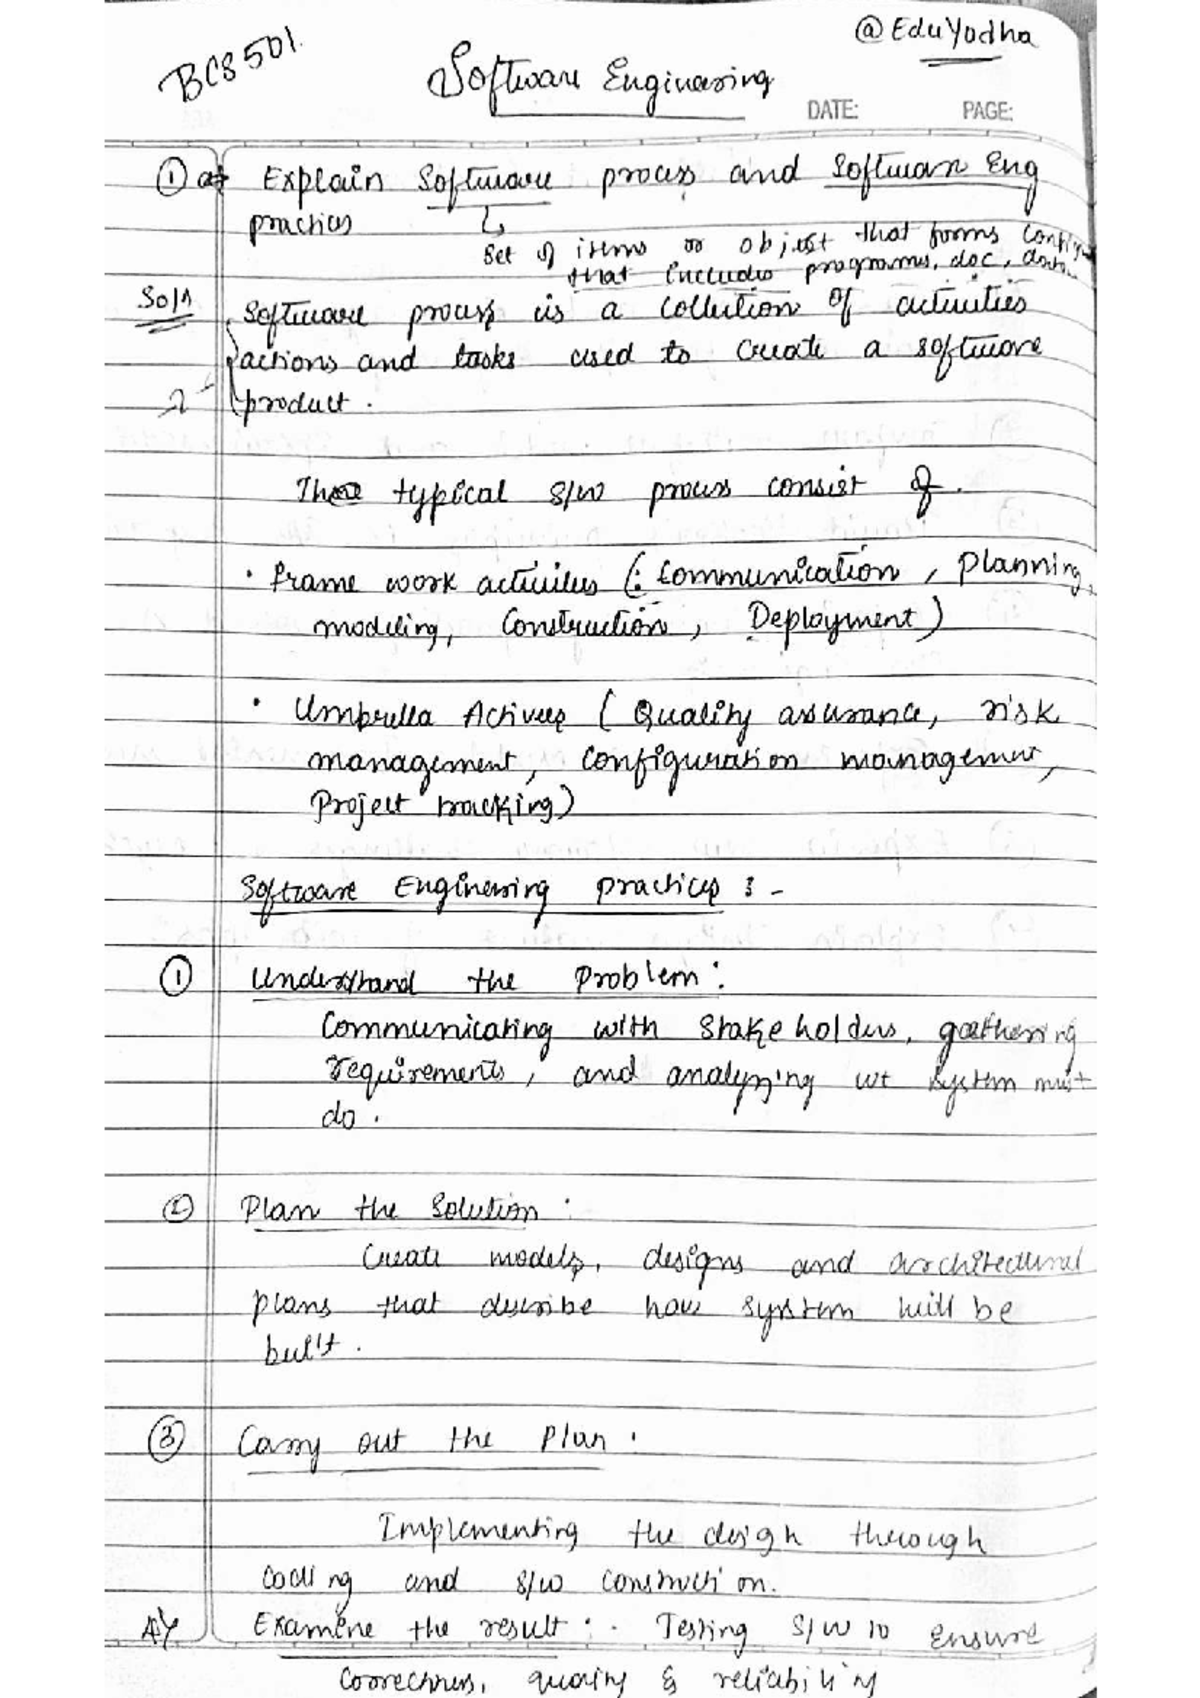 @EduYodha
BCS501.
Software Engineering
DATE: PAGE:
① a) Explain Software process and Software Eng
practices
↳ Set of items or object that forms config
that includes programs, doc, data..
Soln
Software process is a collection of activities
actions and tasks used to create a software
product.
The typical S/W process consist of.
· frame work activities (: Communication, Planning,
modeling, Construction, Deployment)
· Umbrella Actives (Quality assurance, risk
management, Configuration management,
Project tracking)
Software Engineering practices :-
① Understand the Problem:
Communicating with Stakeholders, gathering
requirements, and analyzing wt system must
do.
② Plan the Solution:
Create models, designs and architectural
plans that describe how system will be
built.
③ Carry out the Plan:
Implementing the design through
coding and S/W construction.
Examine the result: · Testing S/W to ensure
correctness, quality & reliability